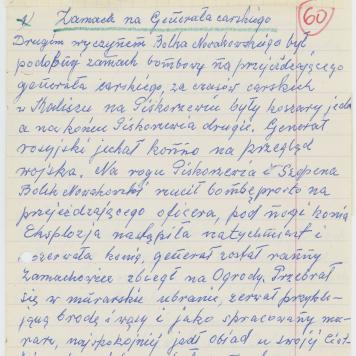 Zamach na Generała carskiego
60
Drugim wyczynem Bolka Nowakowskiego był
podobny zamach bombowy na przejeżdżającego
generała carskiego, za czasów carskich
w Kaliszu na Piskorzewiu były koszary jedne
a na końcu Piskorzewia drugie. Generał
rosyjski jechał konno na przegląd
wojska. Na rogu Piskorzewia i
Bolik Nowakowski rzucił bombę prosto na
przejeżdżającego oficera, pod nogi konia
Eksplozja nastąpiła natychmiast i
rozerwała konia, generał został ranny
Zamachowiec zbiegł na Ogrody. Przebrał
się w murarskie ubranie, zerwał przykle-
joną brodę i wąsy i jako spracowany mu-
rarz, najspokojniej jadł obiad u swojej